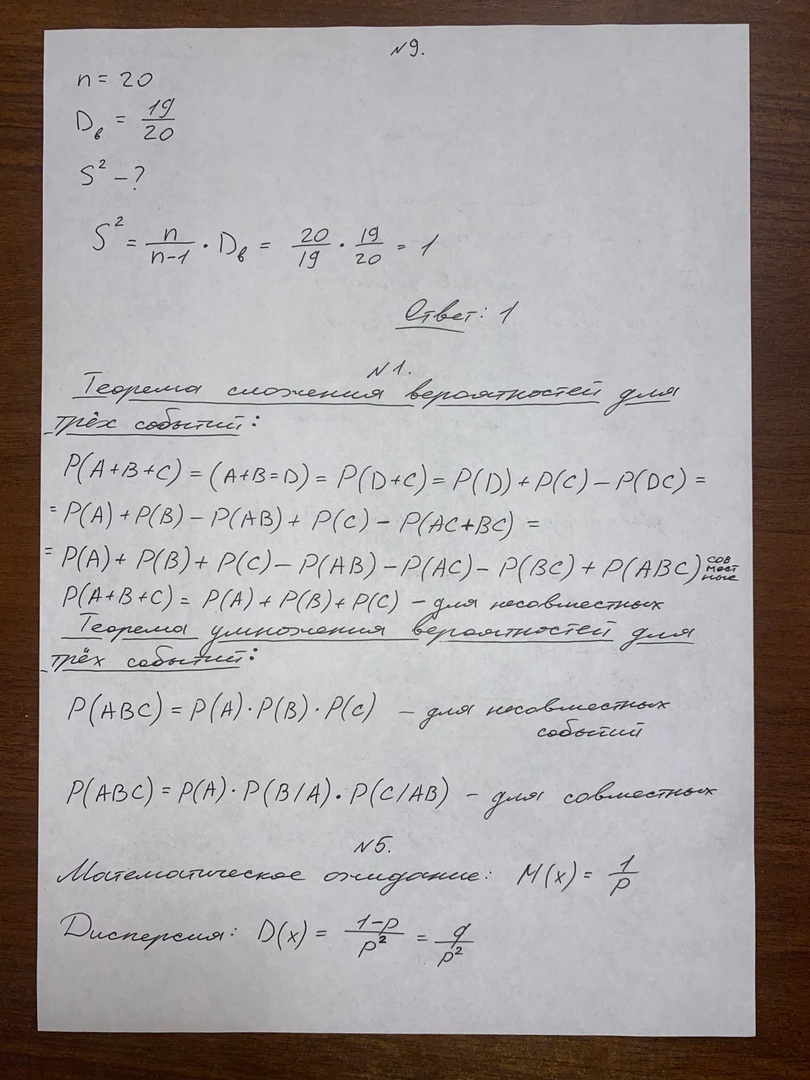 №9.
n = 20
Dв = 19/20
S² – ?
S² = n/(n-1) · Dв = 20/19 · 19/20 = 1
Ответ: 1
№1.
Теорема сложения вероятностей для
трёх событий:
P(A+B+C) = (A+B=D) = P(D+C) = P(D) + P(C) – P(DC) =
= P(A) + P(B) – P(AB) + P(C) – P(AC+BC) =
= P(A) + P(B) + P(C) – P(AB) – P(AC) – P(BC) + P(ABC) совместные
P(A+B+C) = P(A) + P(B) + P(C) – для несовместных
Теорема умножения вероятностей для
трёх событий:
P(ABC) = P(A) · P(B) · P(C) – для несовместных
событий
P(ABC) = P(A) · P(B/A) · P(C/AB) – для совместных
№5.
Математическое ожидание: M(x) = 1/p
Дисперсия: D(x) = (1-p)/p² = q/p²